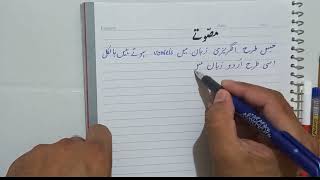 مصوّتے
جس طرح انگریزی زبان میں vowels ہوتے ہیں بالکل
اسی طرح اُردو زبان میں